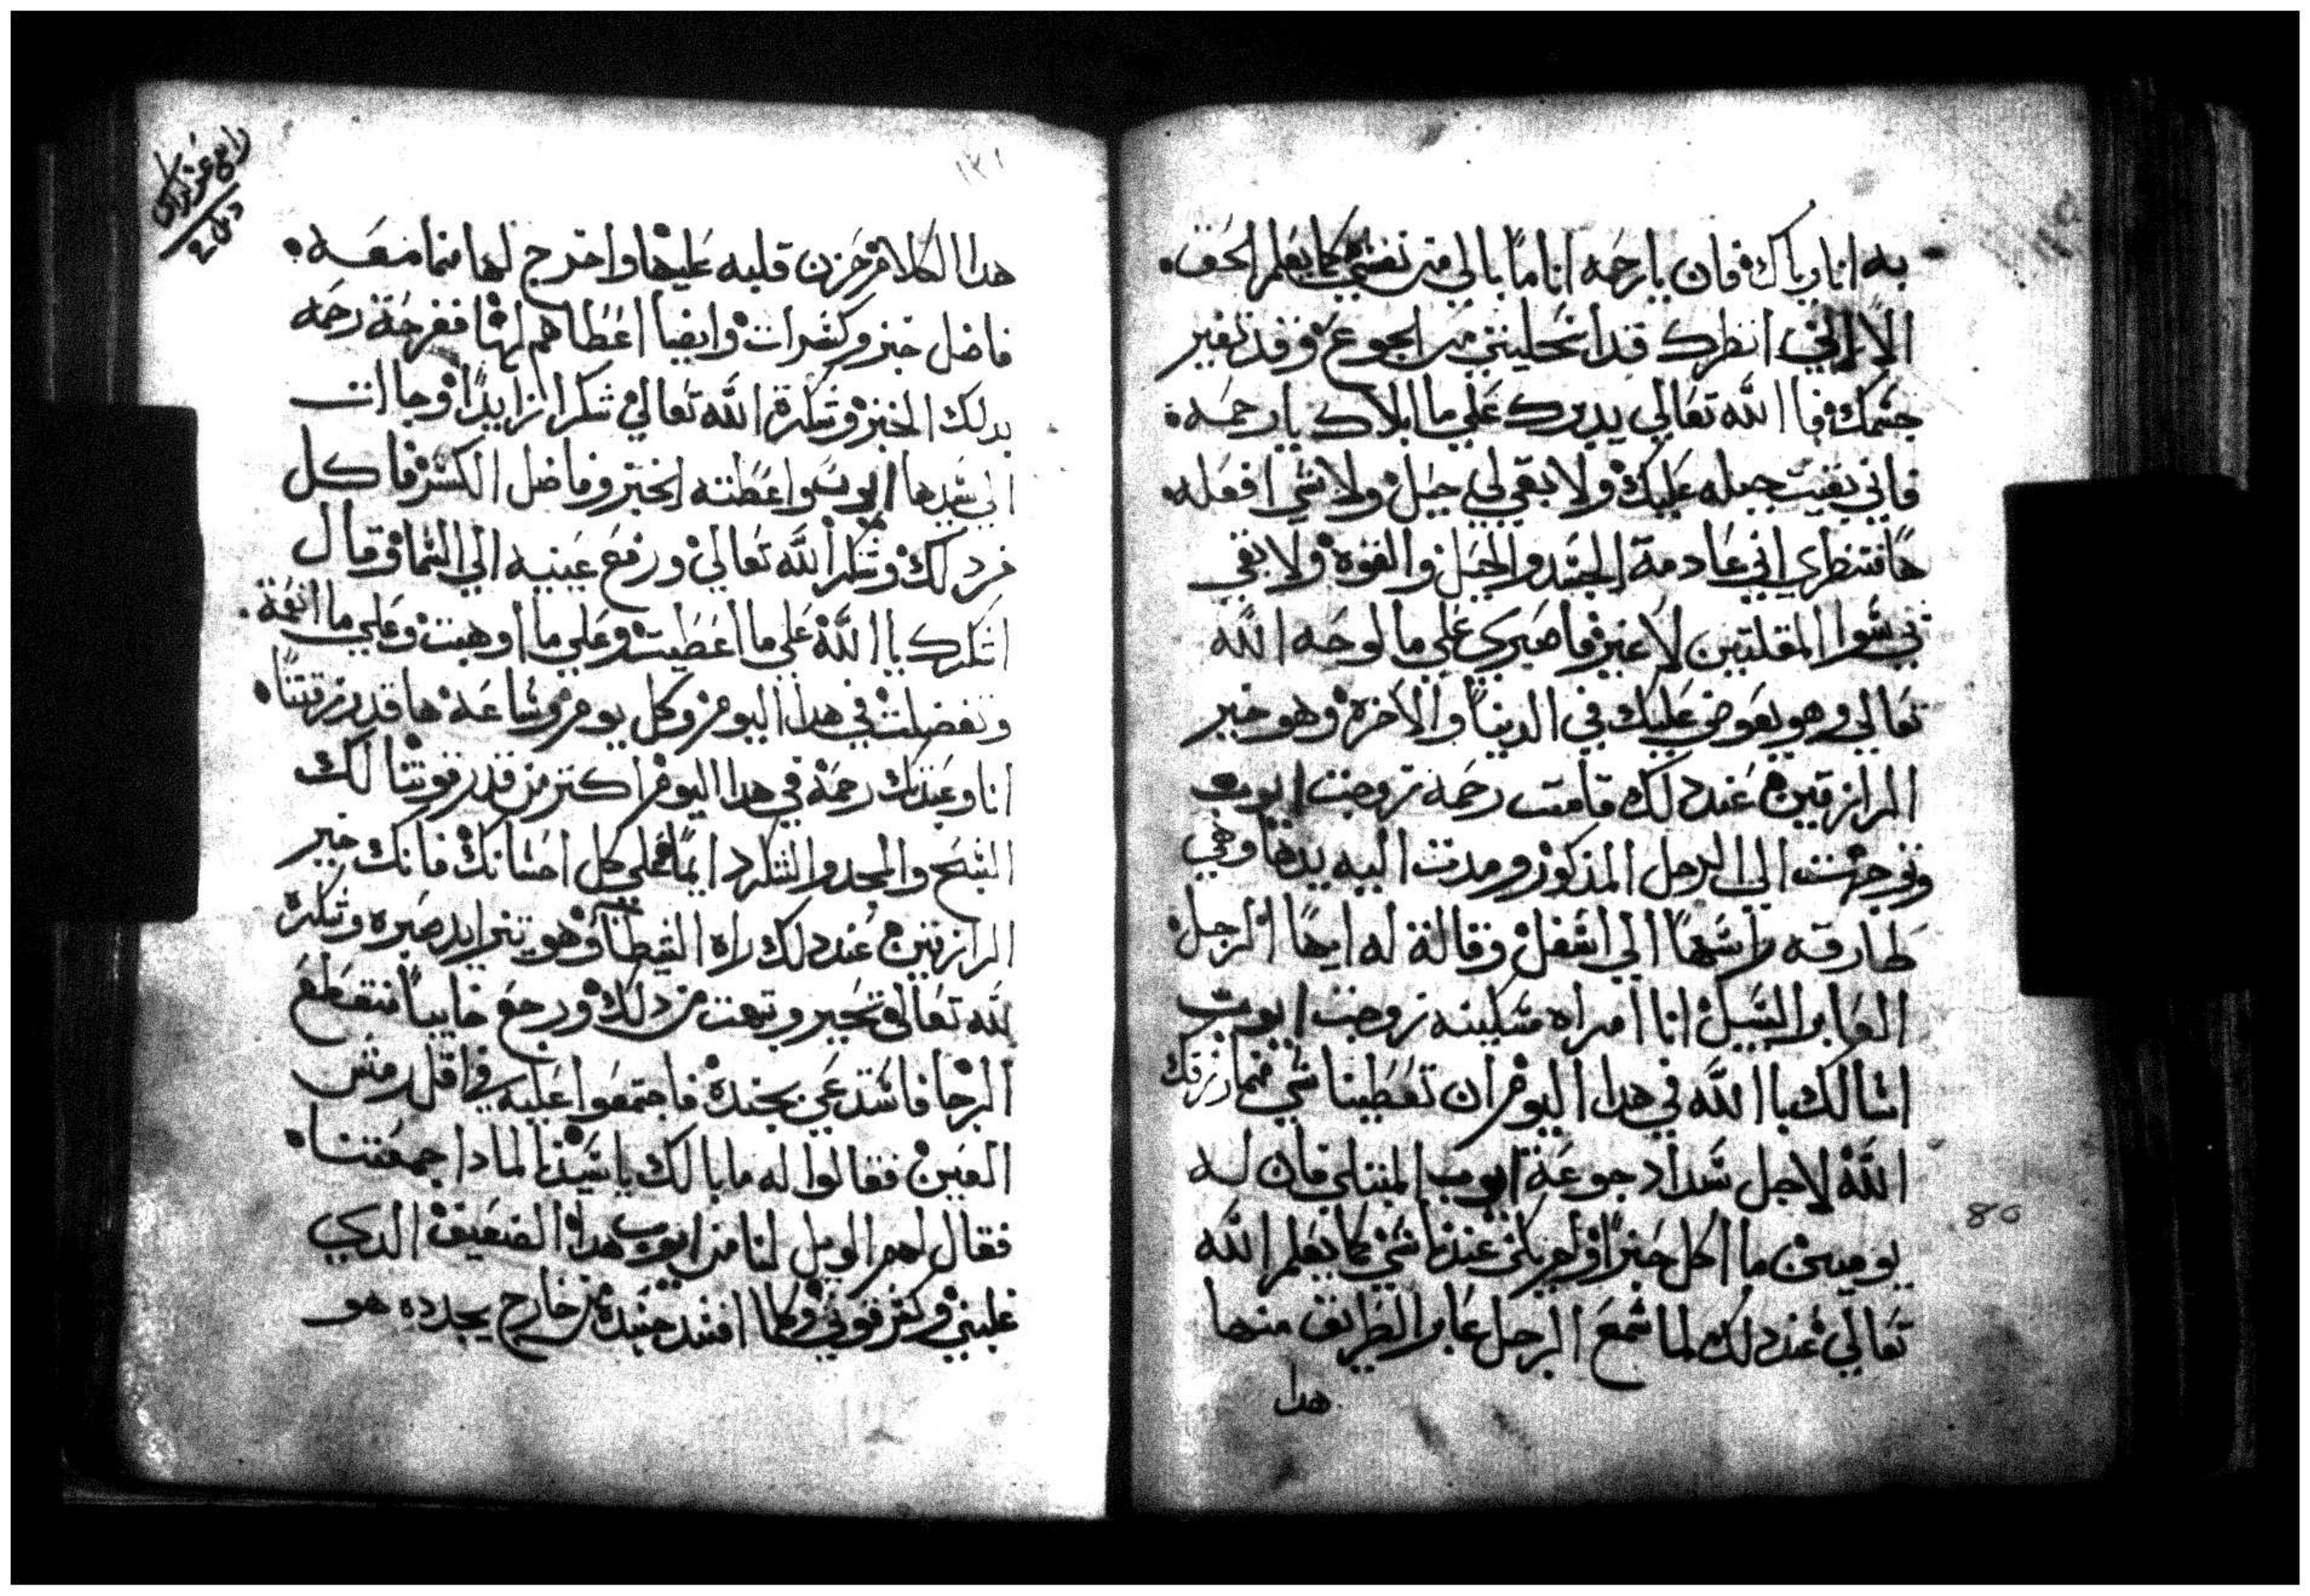 به انا وياك فان يارحمه انا ما بالي من نفسي كما يعلم الحق
الا انني انظرك قد انتحليتي من الجوع وقد تغير
جسمك فا الله تعالي يديرك علي ما ابلاك يا رحمه
فاني بقيت حمله عليك ولا بقي لي حيل ولا شي افعله
ها فتنظري اني عادمة الجسد والحيل والقوه ولا بقي
في سوا المقلتين لا غير فاصبري علي مالوحه الله
تعالي وهو يعوض عليك في الدنيا والاخره وهو خير
الرازقين عند دلك قامت رحمه زوجت ايوب
وتوجهت الي الرجل المدكور ومدت اليه يدها وهي
طارقه راسها الي اسفل وقالة له ايها الرجل
العابر السبيل انا امراه مسكينه زوجت ايوب
اسالك با الله في هدا اليوم ان تعطينا شي مما رزقك
الله لاجل سداد جوعة ايوب المبتلي فان له
يومين ما اكل خبزا ولم يكن عندنا شي كما يعلم الله
تعالي عند دلك لما سمع الرجل عابر الطريق منها
هدا
80
١٢١
هدا الكلام حزن قلبه عليها واخرج لها مما معه
فاضل خبز وكسرات وايضا اعطاهم لها ففرحة رحمه
بدلك الخبز وشكرة الله تعالي شكرا زايدا وجاات
الي سيدها ايوب واعطته الخبز وفاضل الكسر فاكل
من دلك وشكر الله تعالي ورفع عينيه الي السما وقال
اشكرك يا الله علي ما اعطيت وعلي ما اوهبت وعلي ما انعمة
وتفضلت في هدا اليوم وكل يوم وساعة ها قد رزقتنا
انا وعبدتك رحمة في هدا اليوم اكتر من قدر قوتنا لك
السبح والمجد والشكر دايما علي كل احسانك فانك خير
الرازقين عند دلك راه الشيطان وهو يتزايد صبره وشكره
لله تعالي تحير وتبهت من دلك ورجع خايبا منقطع
الرجا فاستدعي بجنده فاجتمعوا عليه في اقل رمش
العين فقالوا له ما بالك يا سيدنا لمادا جمعتنا
فقال لهم الويل لنا من ايوب هدا الضعيف الدي
غلبني وكسر قوتي وكلما افسد جسده من خارج يجدده هو